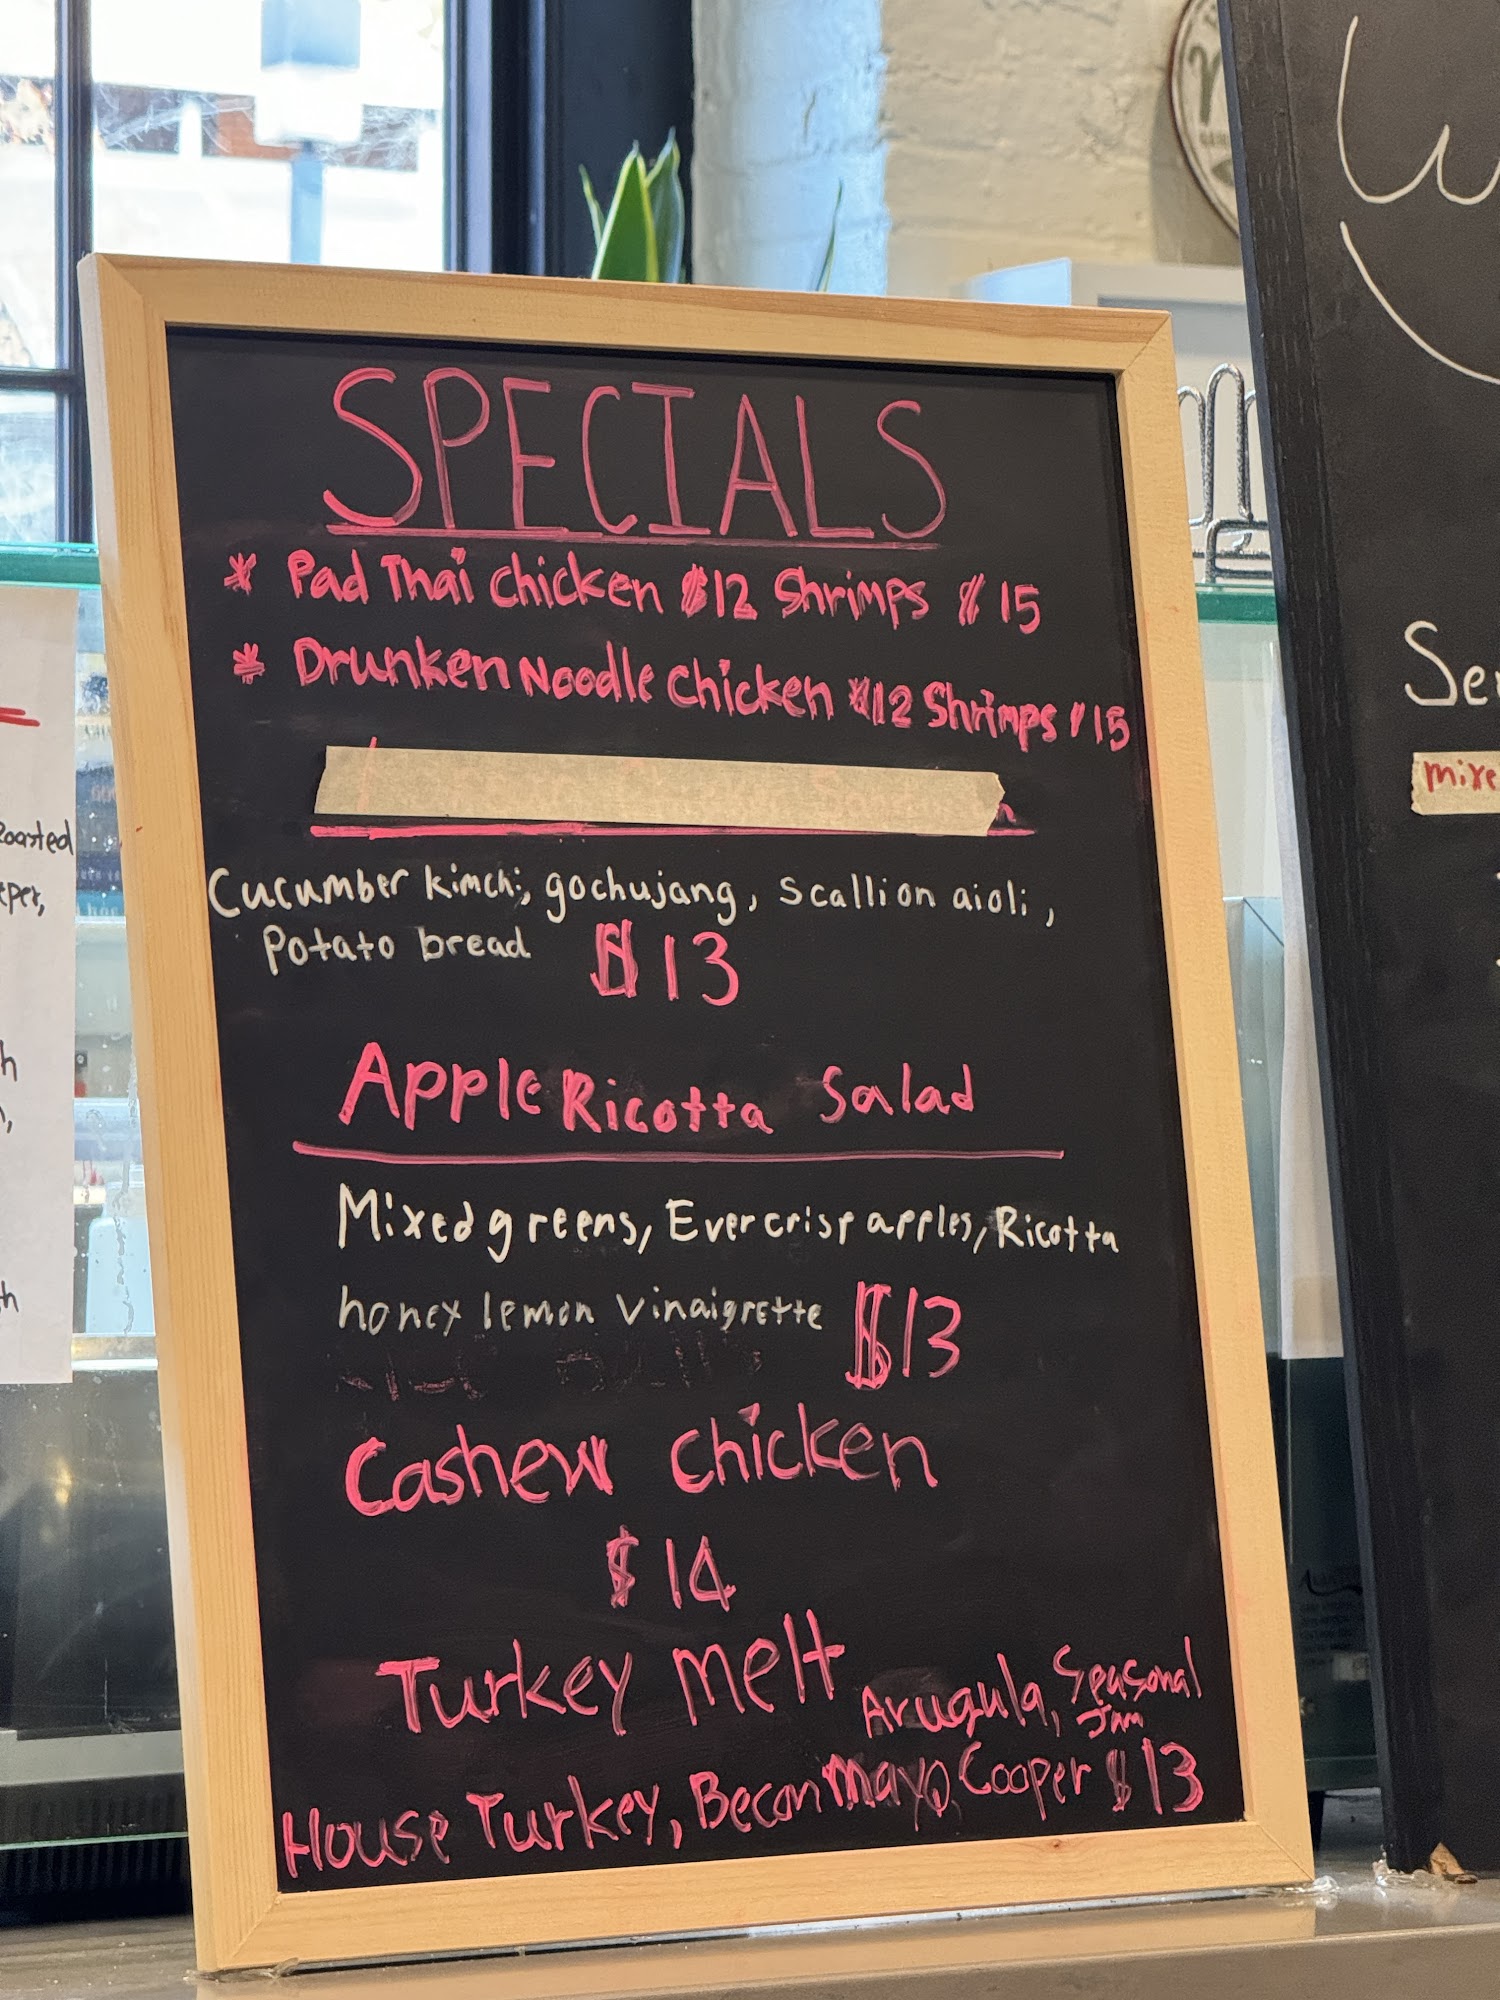 SPECIALS
* Pad Thai Chicken $12 Shrimps $15
* Drunken Noodle Chicken $12 Shrimps $15
Cucumber kimchi, gochujang, scallion aioli,
Potato bread $13
Apple Ricotta Salad
Mixed greens, Evercrisp apples, Ricotta
honey lemon vinaigrette $13
Cashew chicken
$14
Turkey melt Arugula, Seasonal
Jam
House Turkey, Becon Mayo, Cooper $13
Roasted
mixe